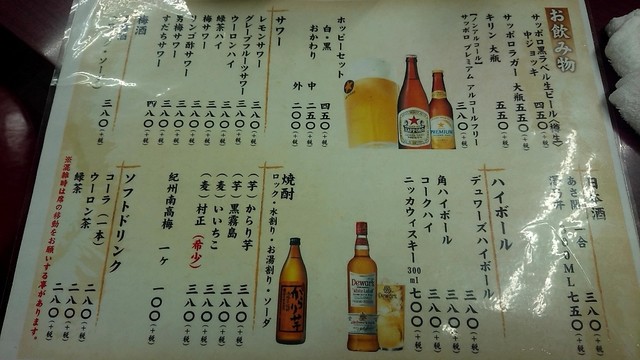 お飲み物
サッポロ黒ラベル生ビール(樽生)
中ジョッキ 四五〇(+税)
サッポロラガー 大瓶 五五〇(+税)
キリン 大瓶 五五〇(+税)
【ノンアルコール】
サッポロ プレミアム アルコールフリー
三八〇(+税)
ホッピーセット
白・黒 四五〇(+税)
おかわり 中 二〇〇(+税)
外 二〇〇(+税)
サワー
レモンサワー 三八〇(+税)
グレープフルーツサワー 三八〇(+税)
ウーロンハイ 三八〇(+税)
緑茶ハイ 三八〇(+税)
梅サワー 三八〇(+税)
リンゴ酢サワー 三八〇(+税)
男梅サワー 三八〇(+税)
すだちサワー 四八〇(+税)
梅酒
ソーダ)
三八〇(+税)
日本酒
一合 三八〇(+税)
ML 七五〇(+税)
ハイボール
デュワーズハイボール 三八〇(+税)
角ハイボール 三八〇(+税)
コークハイ 三八〇(+税)
ニッカウィスキー 300ml 七〇〇(+税)
Dewar's
焼酎
ロック・水割り・お湯割り・ソーダ
(芋)からり芋 三八〇(+税)
(芋)黒霧島 三八〇(+税)
(麦)いいちこ 三八〇(+税)
(麦)村正(希少) 三八〇(+税)
紀州南高梅 一ケ 一〇〇(+税)
からり芋
ソフトドリンク
コーラ(一本) 二八〇(+税)
ウーロン茶 二八〇(+税)
緑茶 二八〇(+税)
※混雑時は席の移動をお願いする事があります。